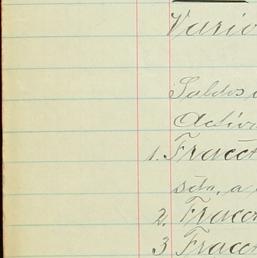 Vario
Saldos
Activ
1. Fracc
sito, a
2. Fracc
3 Fracc